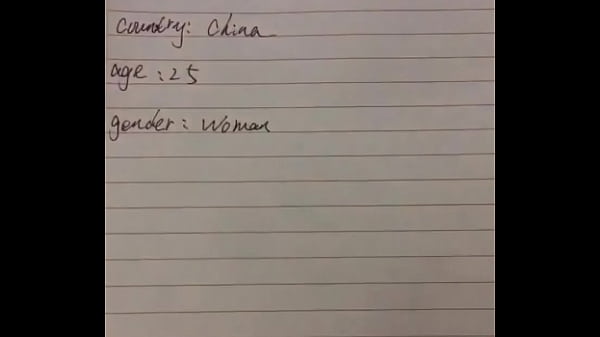 Country: China
age : 25
gender : Woman